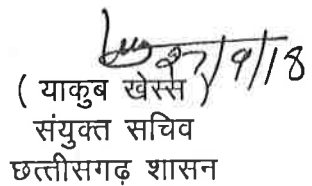 27/9/18
( याकुब खेस्स )
संयुक्त सचिव
छत्तीसगढ़ शासन